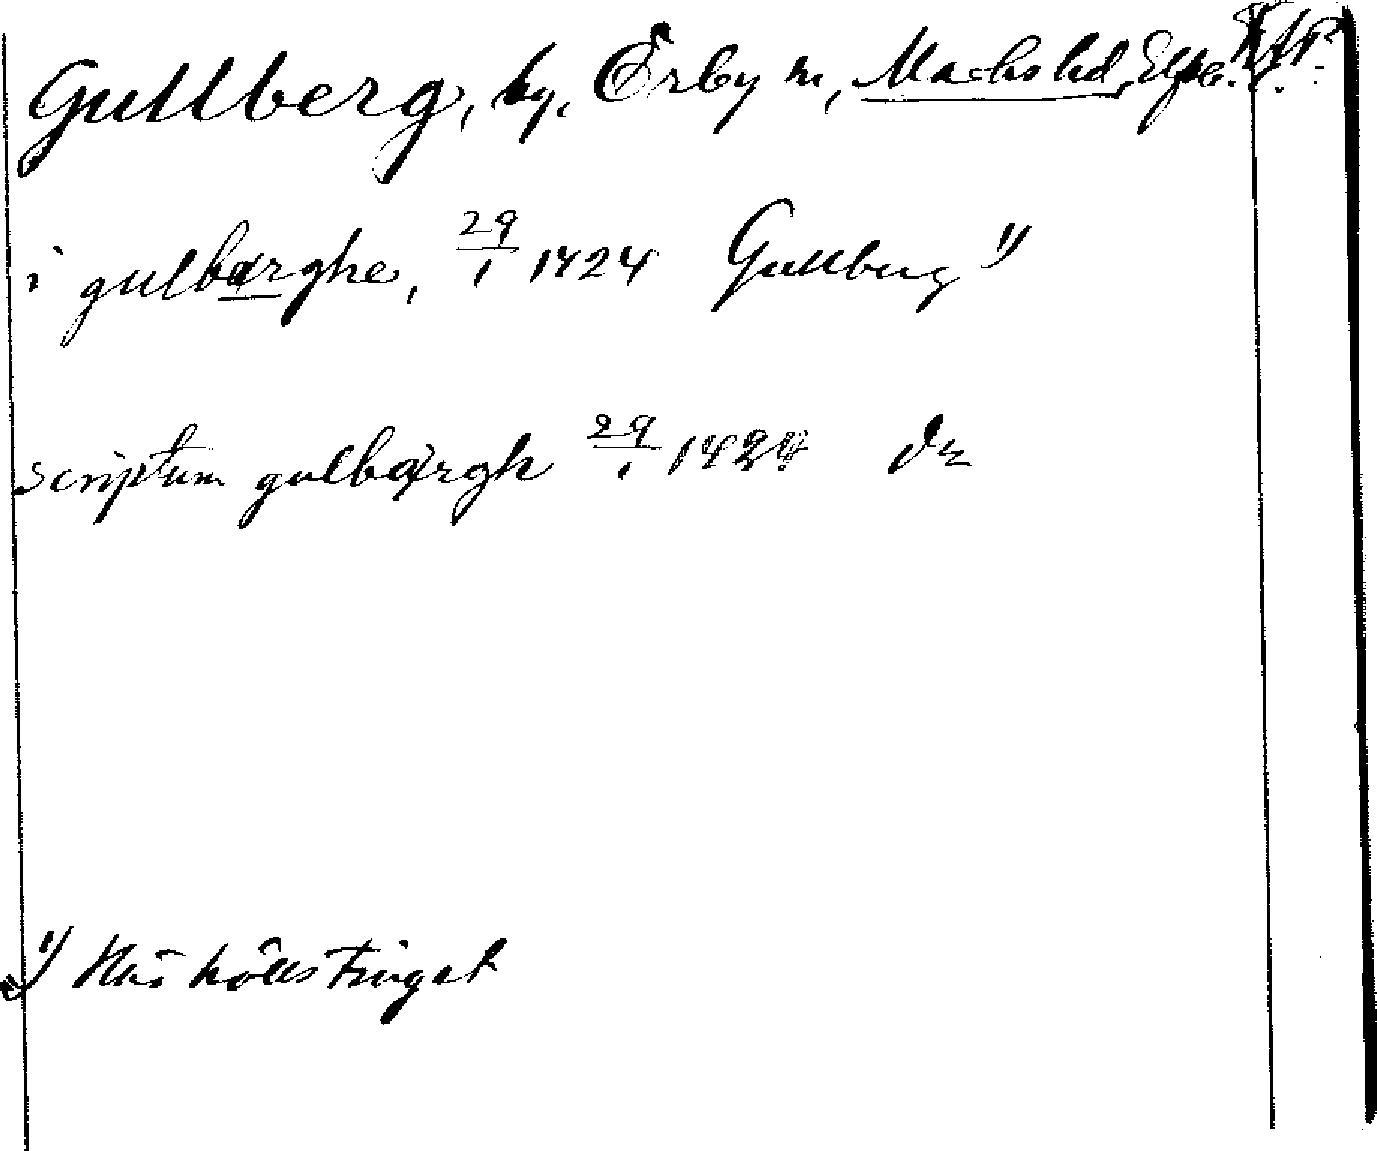 Gullberg, by, Örby sn, Marks hd, Elfsb.
i gulbærghe, 29/1 1424 Gullberg 1)
scriptum gulbærgh 29/1 1424 do
1) Här hölls tinget